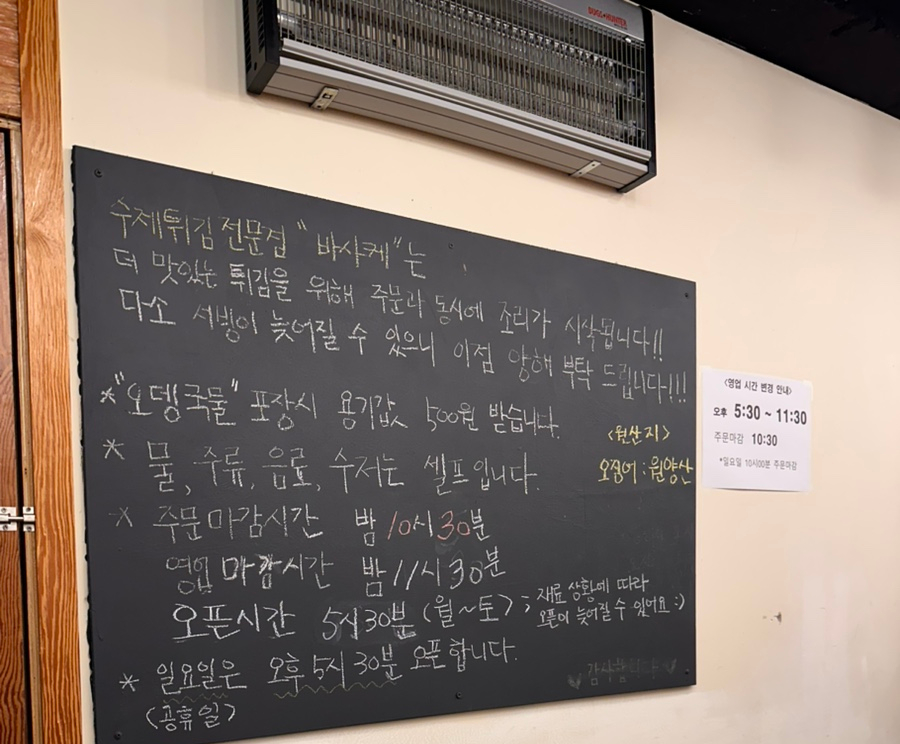 수제튀김 전문점 "바사케"는
더 맛있는 튀김을 위해 주문과 동시에 조리가 시작됩니다!!
다소 서빙이 늦어질 수 있으니 이점 양해 부탁 드립니다!!!
*"오뎅국물" 포장시 용기값 500원 받습니다.
* 물, 주류, 음료, 수저는 셀프입니다.
<원산지>
오징어:원양산
* 주문마감시간 밤 10시 30분
영업마감시간 밤 11시 30분
오픈시간 5시30분 (월~토) ; 재료 상황에 따라
오픈이 늦어질 수 있어요 :)
* 일요일은 오후 5시 30분 오픈합니다.
(공휴일)
감사합니다
<영업 시간 변경 안내>
오후 5:30 ~ 11:30
주문마감 10:30
*일요일 10시00분 주문마감